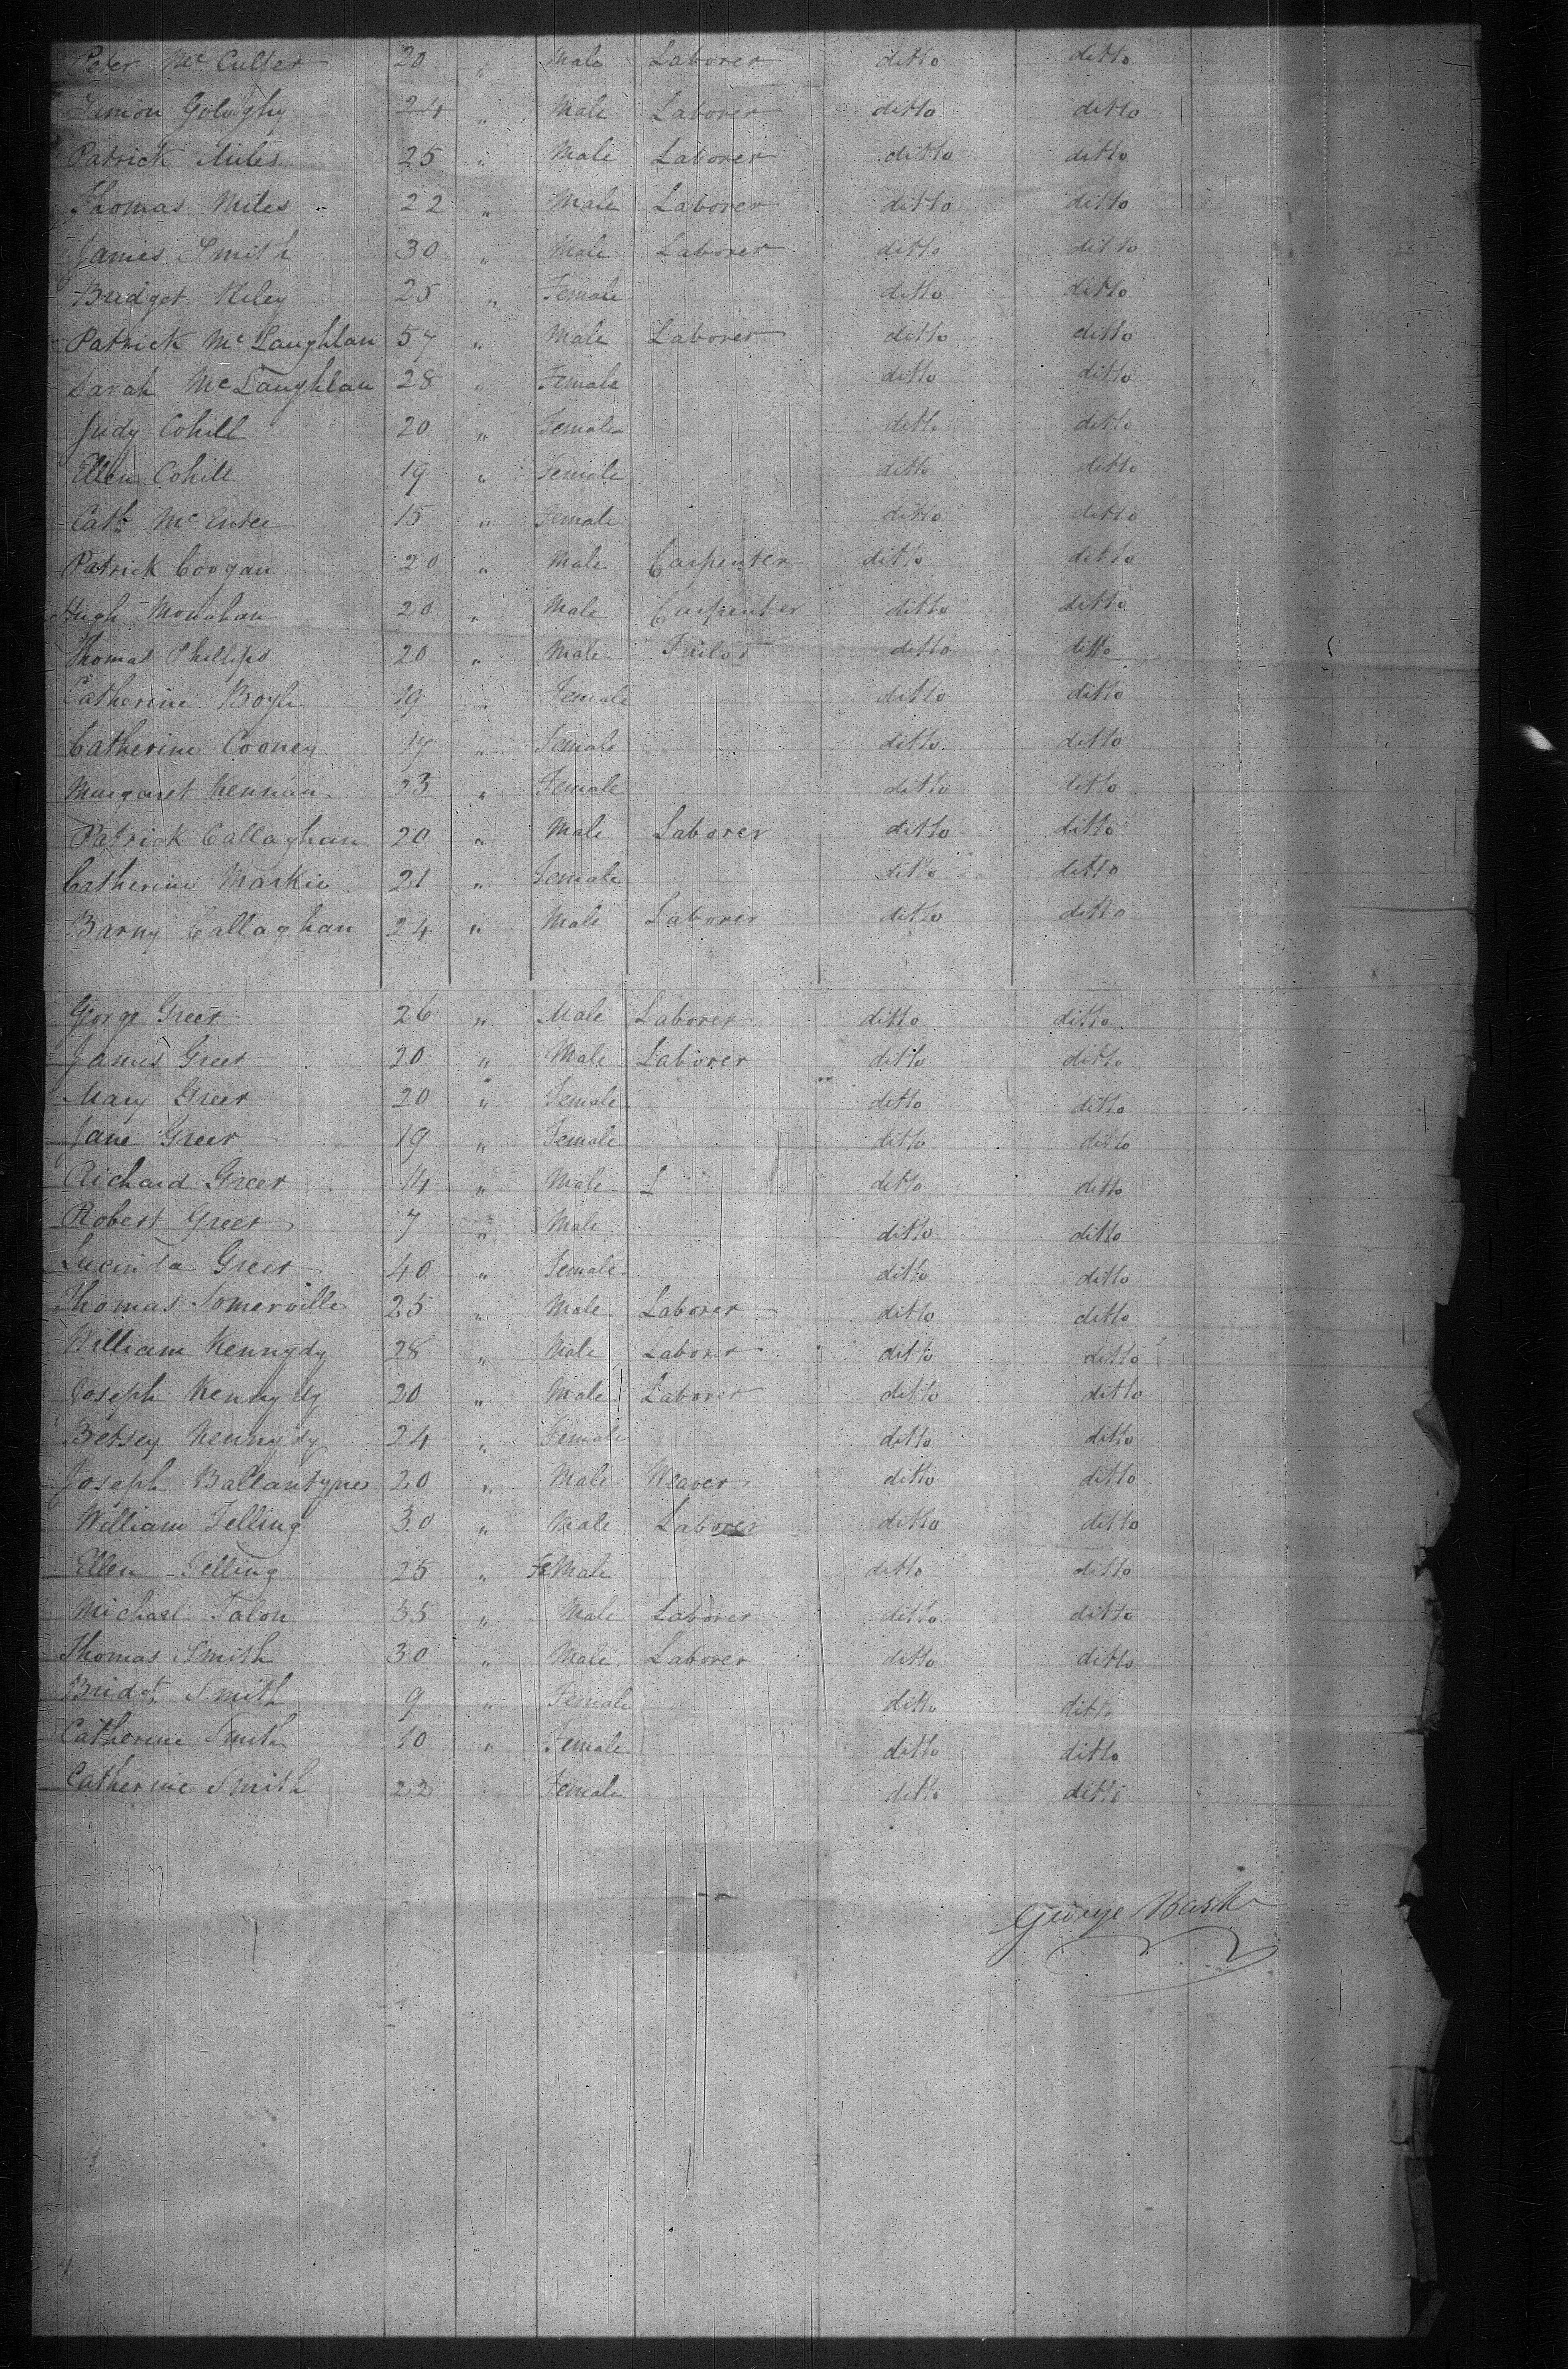 Peter Mc Culfer 20 " Male Laborer ditto ditto
Simon Gologhy 24 " Male Laborer ditto ditto
Patrick Miles 25 " Male Laborer ditto ditto
Thomas Miles 22 " Male Laborer ditto ditto
James Smith 30 " Male Laborer ditto ditto
Bridget Kiley 25 " Female ditto ditto
Patrick McLaughlan 57 " Male Laborer ditto ditto
Sarah McLaughlan 28 " Female ditto ditto
Judy Cohill 20 " Female ditto ditto
Ellen Cohill 19 " Female ditto ditto
Cath McEntee 15 " Female ditto ditto
Patrick Coogan 20 " Male Carpenter ditto ditto
Hugh Monahan 20 " Male Carpenter ditto ditto
Thomas Phillips 20 " Male Tailor ditto ditto
Catherine Boyle 19 " Female ditto ditto
Catherine Cooney 17 " Female ditto ditto
Margaret Kennan 23 " Female ditto ditto
Patrick Callaghan 20 " Male Laborer ditto ditto
Catherine Markie 21 " Female ditto ditto
Barny Callaghan 24 " Male Laborer ditto ditto
George Greer 26 " Male Laborer ditto ditto
James Greer 20 " Male Laborer ditto ditto
Mary Greer 20 " Female ditto ditto
Jane Greer 19 " Female ditto ditto
Richard Greer 14 " Male L ditto ditto
Robert Greer 7 " Male ditto ditto
Lucinda Greer 40 " Female ditto ditto
Thomas Somerville 25 " Male Laborer ditto ditto
William Kennydy 28 " Male Laborer ditto ditto
Joseph Kennydy 20 " Male Laborer ditto ditto
Betsey Kennydy 24 " Female ditto ditto
Joseph Ballantyne 20 " Male Weaver ditto ditto
William Telling 30 " Male Laborer ditto ditto
Ellen Telling 25 " FeMale ditto ditto
Michael Talon 35 " Male Laborer ditto ditto
Thomas Smith 30 " Male Laborer ditto ditto
Bridgt Smith 9 " Female ditto ditto
Catherine Smith 10 " Female ditto ditto
Catherine Smith 22 Female ditto ditto
George